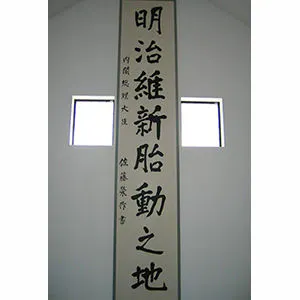 明治維新胎動之地
内閣総理大臣 佐藤榮作書